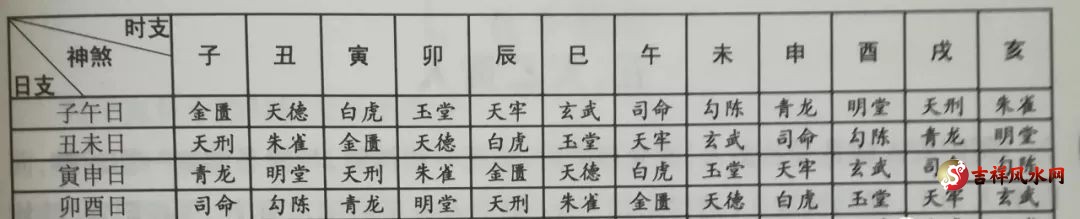 时支
神煞
日支
子 丑 寅 卯 辰 巳 午 未 申 酉 戌 亥
子午日 金匮 天德 白虎 玉堂 天牢 玄武 司命 勾陈 青龙 明堂 天刑 朱雀
丑未日 天刑 朱雀 金匮 天德 白虎 玉堂 天牢 玄武 司命 勾陈 青龙 明堂
寅申日 青龙 明堂 天刑 朱雀 金匮 天德 白虎 玉堂 天牢 玄武 司 勾陈
卯酉日 司命 勾陈 青龙 明堂 天刑 朱雀 金匮 天德 白虎 玉堂 天牢 玄武
吉祥风水网